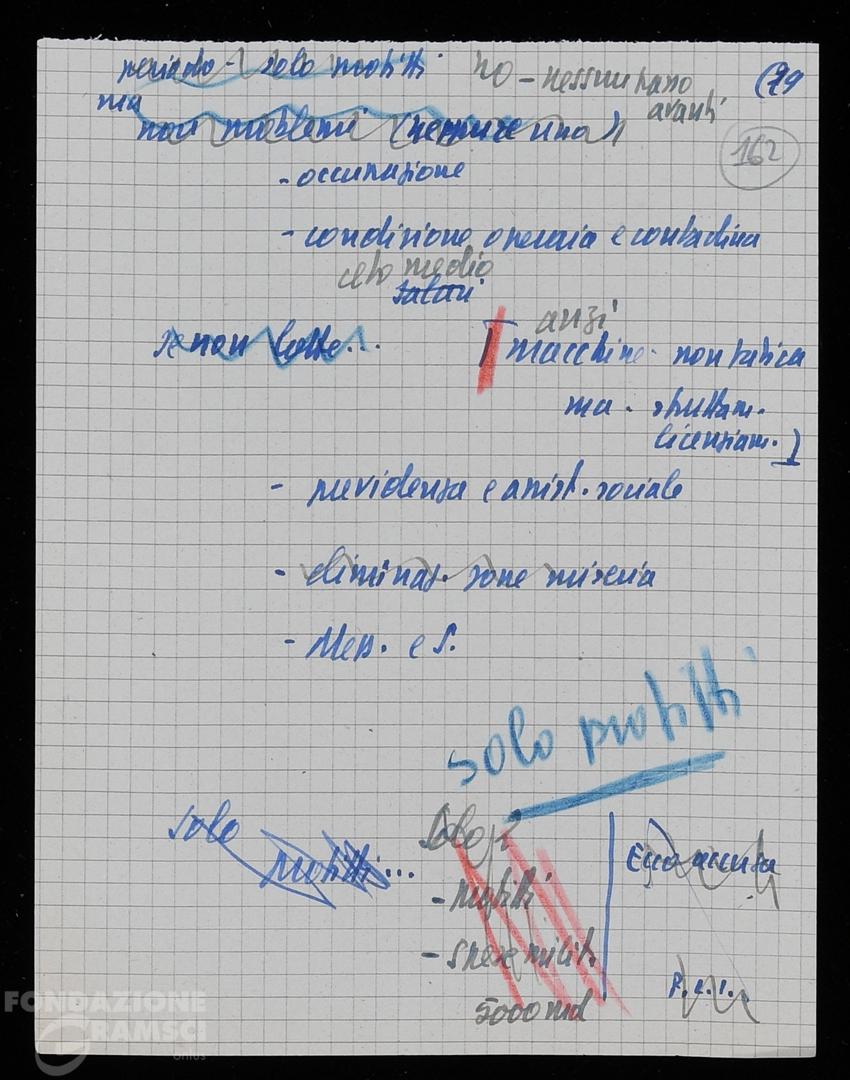 periodo - solo profitti no - nessun passo avanti (29
ma
non problemi (neppure uno) 162
- occupazione
- condizione operaia e contadina
ceto medio
salari
se non lotte... anzi
[macchine - non fatica
ma - sfruttam.
licenziam.]
- previdenza e assist. sociale
- eliminaz. zone miseria
- Mess. e S.
solo profitti
solo profitti...
solo
- profitti
- spese milit.
5000 md
Ecco accusa
P.C.I.
FONDAZIONE
GRAMSCI
onlus